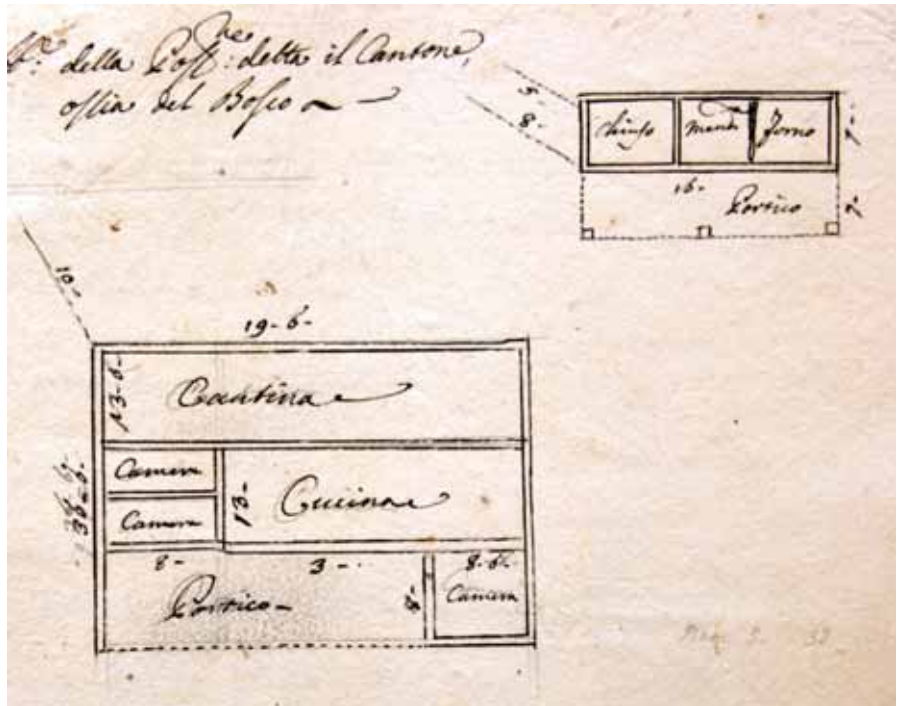 della Poss.ne: detta il Cantone,
ossia del Bosco
5-
8-
chiuso
Forno
7-
16-
Portico
7-
10-
19-6-
13-6-
Cantina
Camera
Cucina
13-
Camera
36-6-
8-
3-
8-6-
Portico
8-
Camera